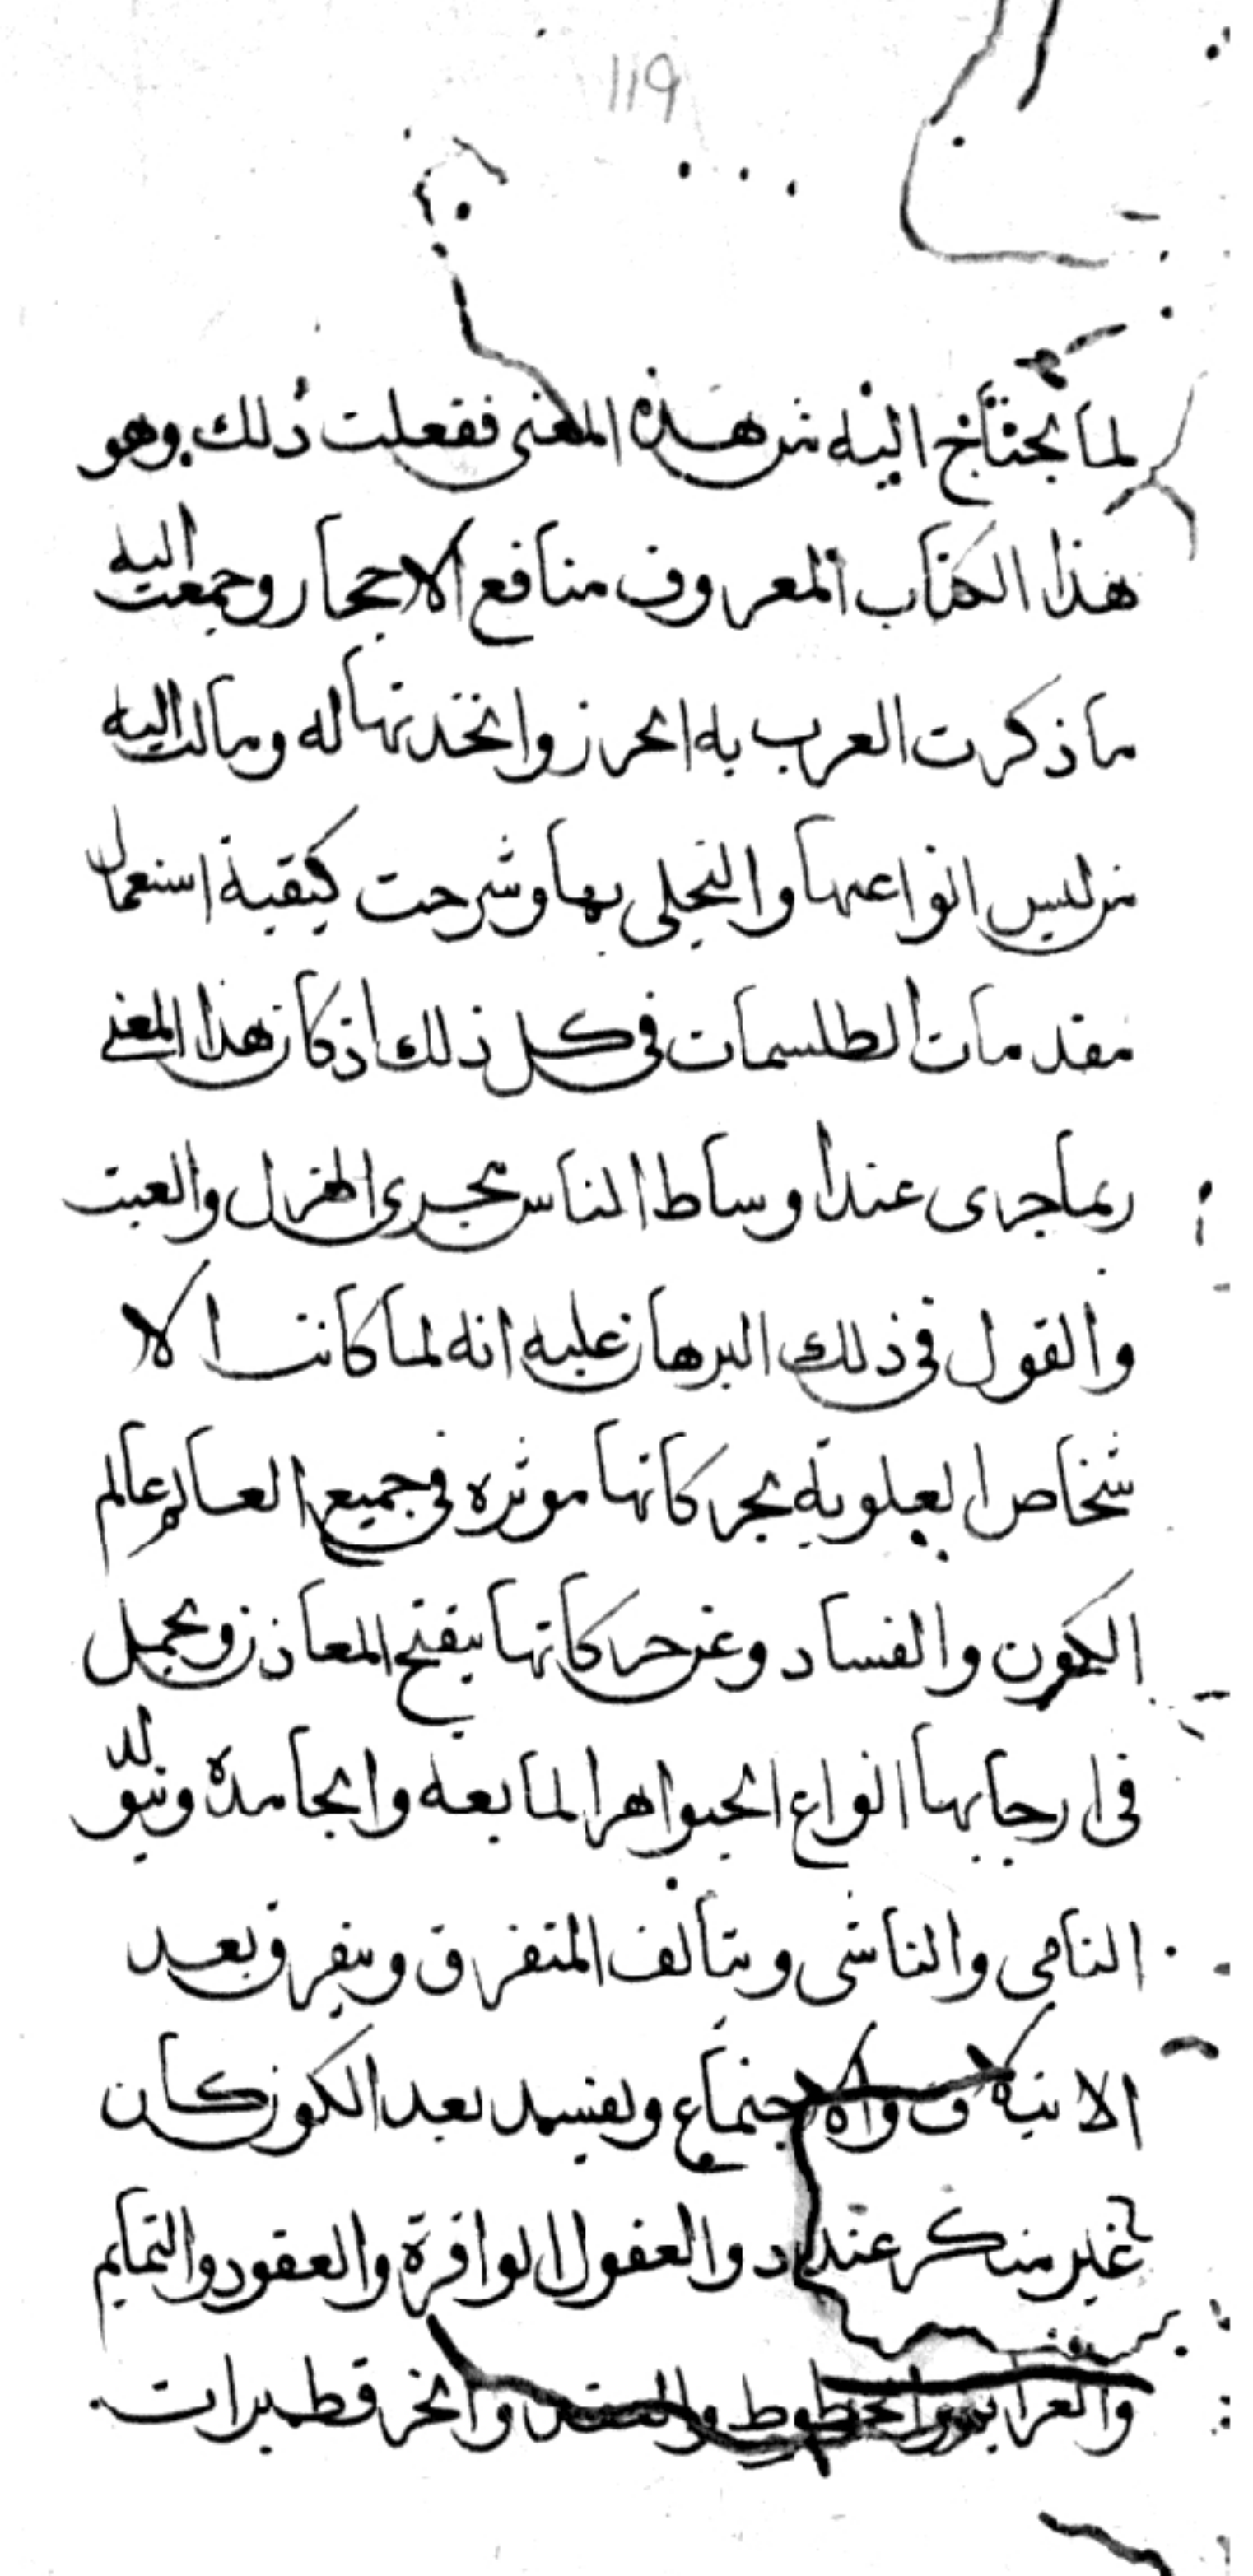 119
لما يحتاج اليه من هذه المعنى ففعلت ذلك وهو
هذا الكتاب المعروف منافع الاحجار وجمعت اليه
ما ذكرت العرب به الخرز واتخذتها له ومالت اليه
من لبس انواعها والتحلي بها وشرحت كيفية استعمال
مقدمات الطلسمات في كل ذلك اذ كان هذا المعنى
ربما جرى عند اوساط الناس مجرى الهزل والعبث
والقول في ذلك البرهان عليه انه لما كانت الا
شخاص العلوية بحركاتها موثره في جميع العالم عالم
الكون والفساد وعن حركاتها ينفتح المعادن ويحمل
في ارحامها انواع الجواهر المايعه والجامدة ويتولد
النامي والناشي ويتالف المتفرق ويفرق بعد
والاجتماع ويفسد بعد الكون كان
غير منكر عند ذو العقول الوافرة والعقود والتمايم
والعزايم والخطوط وا